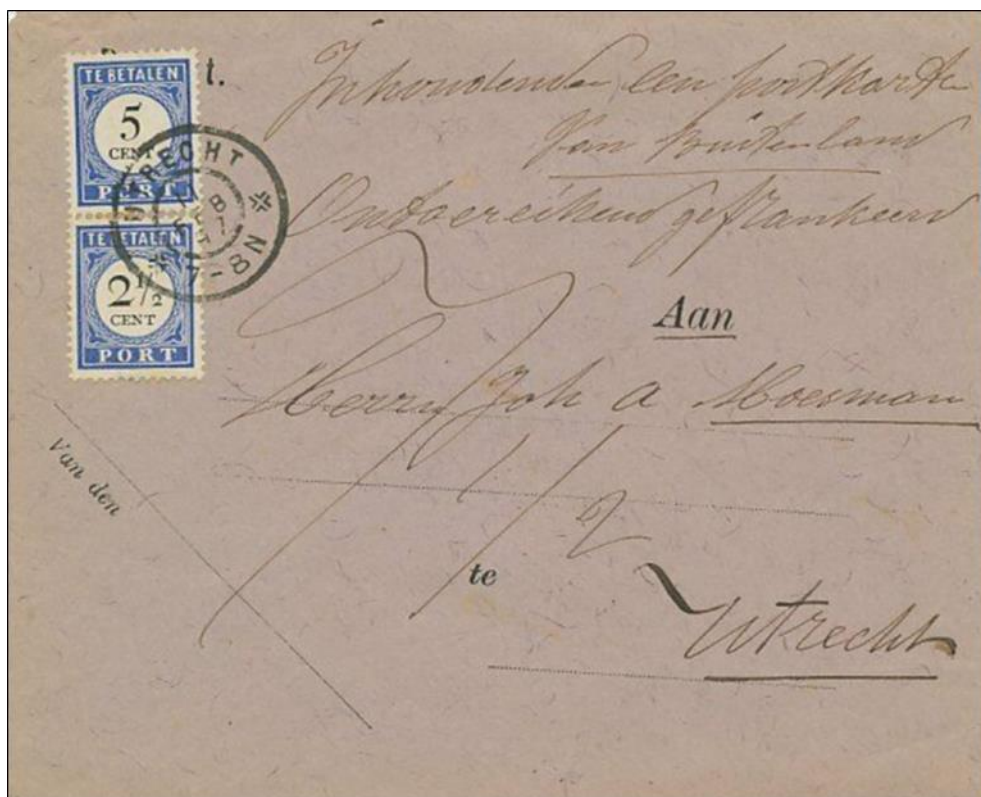 t.
TE BETALEN
5
CENT
PORT
TE BETALEN
2 1/2
CENT
PORT
UTRECHT
7-8N
Inhoudende een postkaarte
Van Buitenland
Ontoereikend gefrankeerd
Aan
Herrn Joh a Moesman
Van den
te
Utrecht